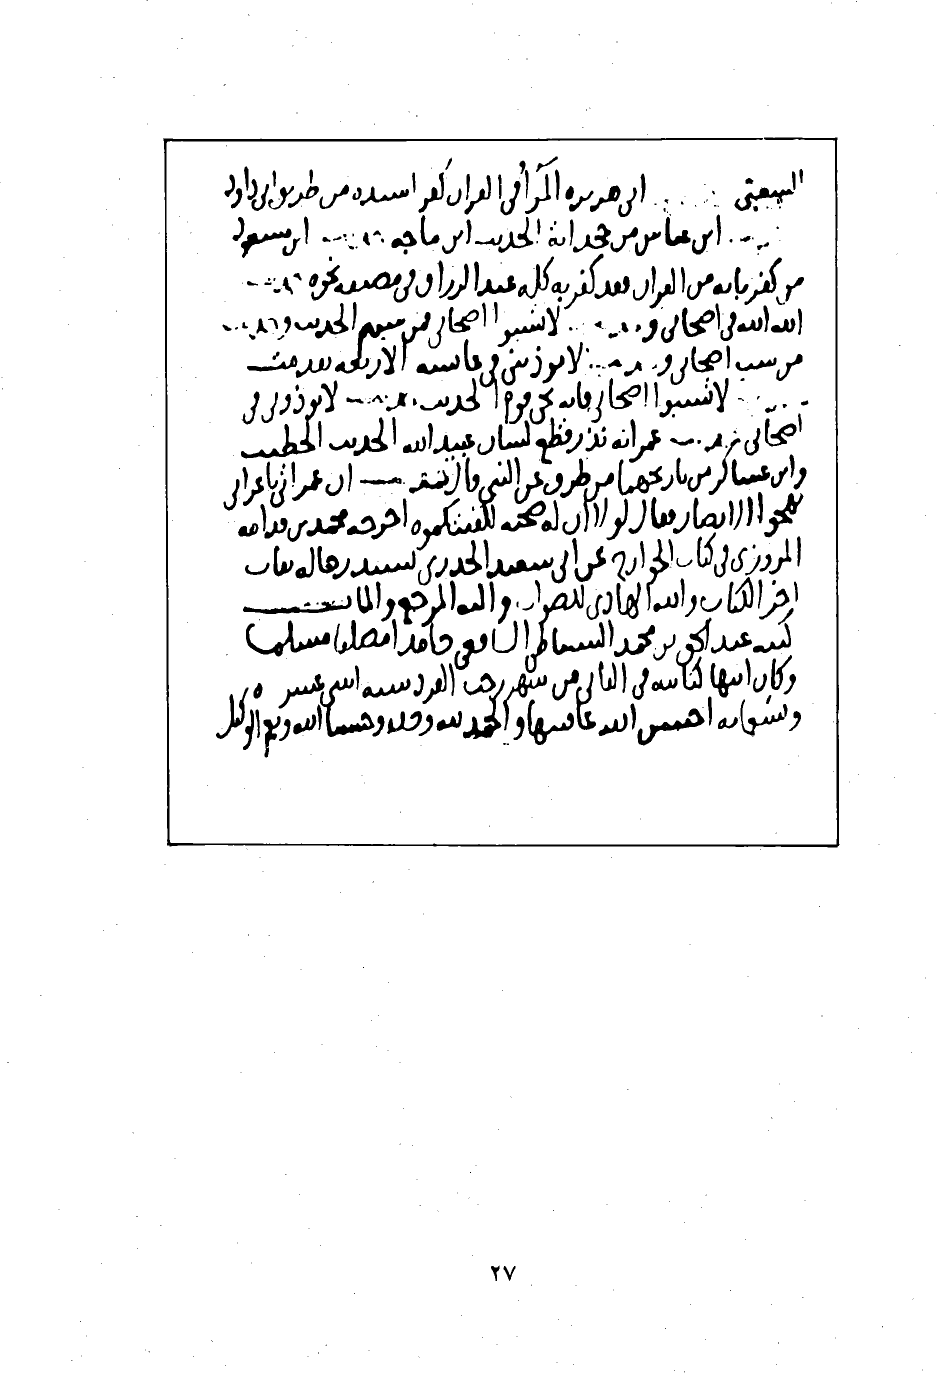 البيهقي ابى هريره المرا فى القران كفر اسنده من طريق ابى داود
ابن عباس من جحد اية الحديث ابن ماجه ابن مسعود
من كفر بايه من القران فقد كفر به كله عبد الرزاق فى مصنفه نحوه
الله الله فى اصحابى لا تسبوا اصحابى فمن سبهم الحديث
من سب اصحابى لا توذينى فى عائشه الاربعه
لا تسبوا اصحابى فانه يجى قوم الحديث لا توذونى فى
اصحابى عمر انه نذر قطع لسان عبيد الله الحديث الخطيب
وابن عساكر من تاريخهما من طرق عن النبى ان عمر اتى باعرابى
يهجو الانصار فقال لولا ان له صحبه لكفيتكموه اخرجه محمد بن قدامه
المروزى فى كتاب الخوارج عن ابى سعيد الخدرى بسند رجاله ثقات
اخر الكتاب والله الهادى للصواب واليه المرجع والماب
كتبه عبد الحق بن محمد السنباطى الشافعى حامدا مصليا مسلما
وكان انتهاا كتابته فى الثانى من شهر رجب الفرد سنه اثنى عشر
وتسعمايه احسن الله عاقبتها والحمد لله وحده وحسبنا الله ونعم الوكيل
٢٧